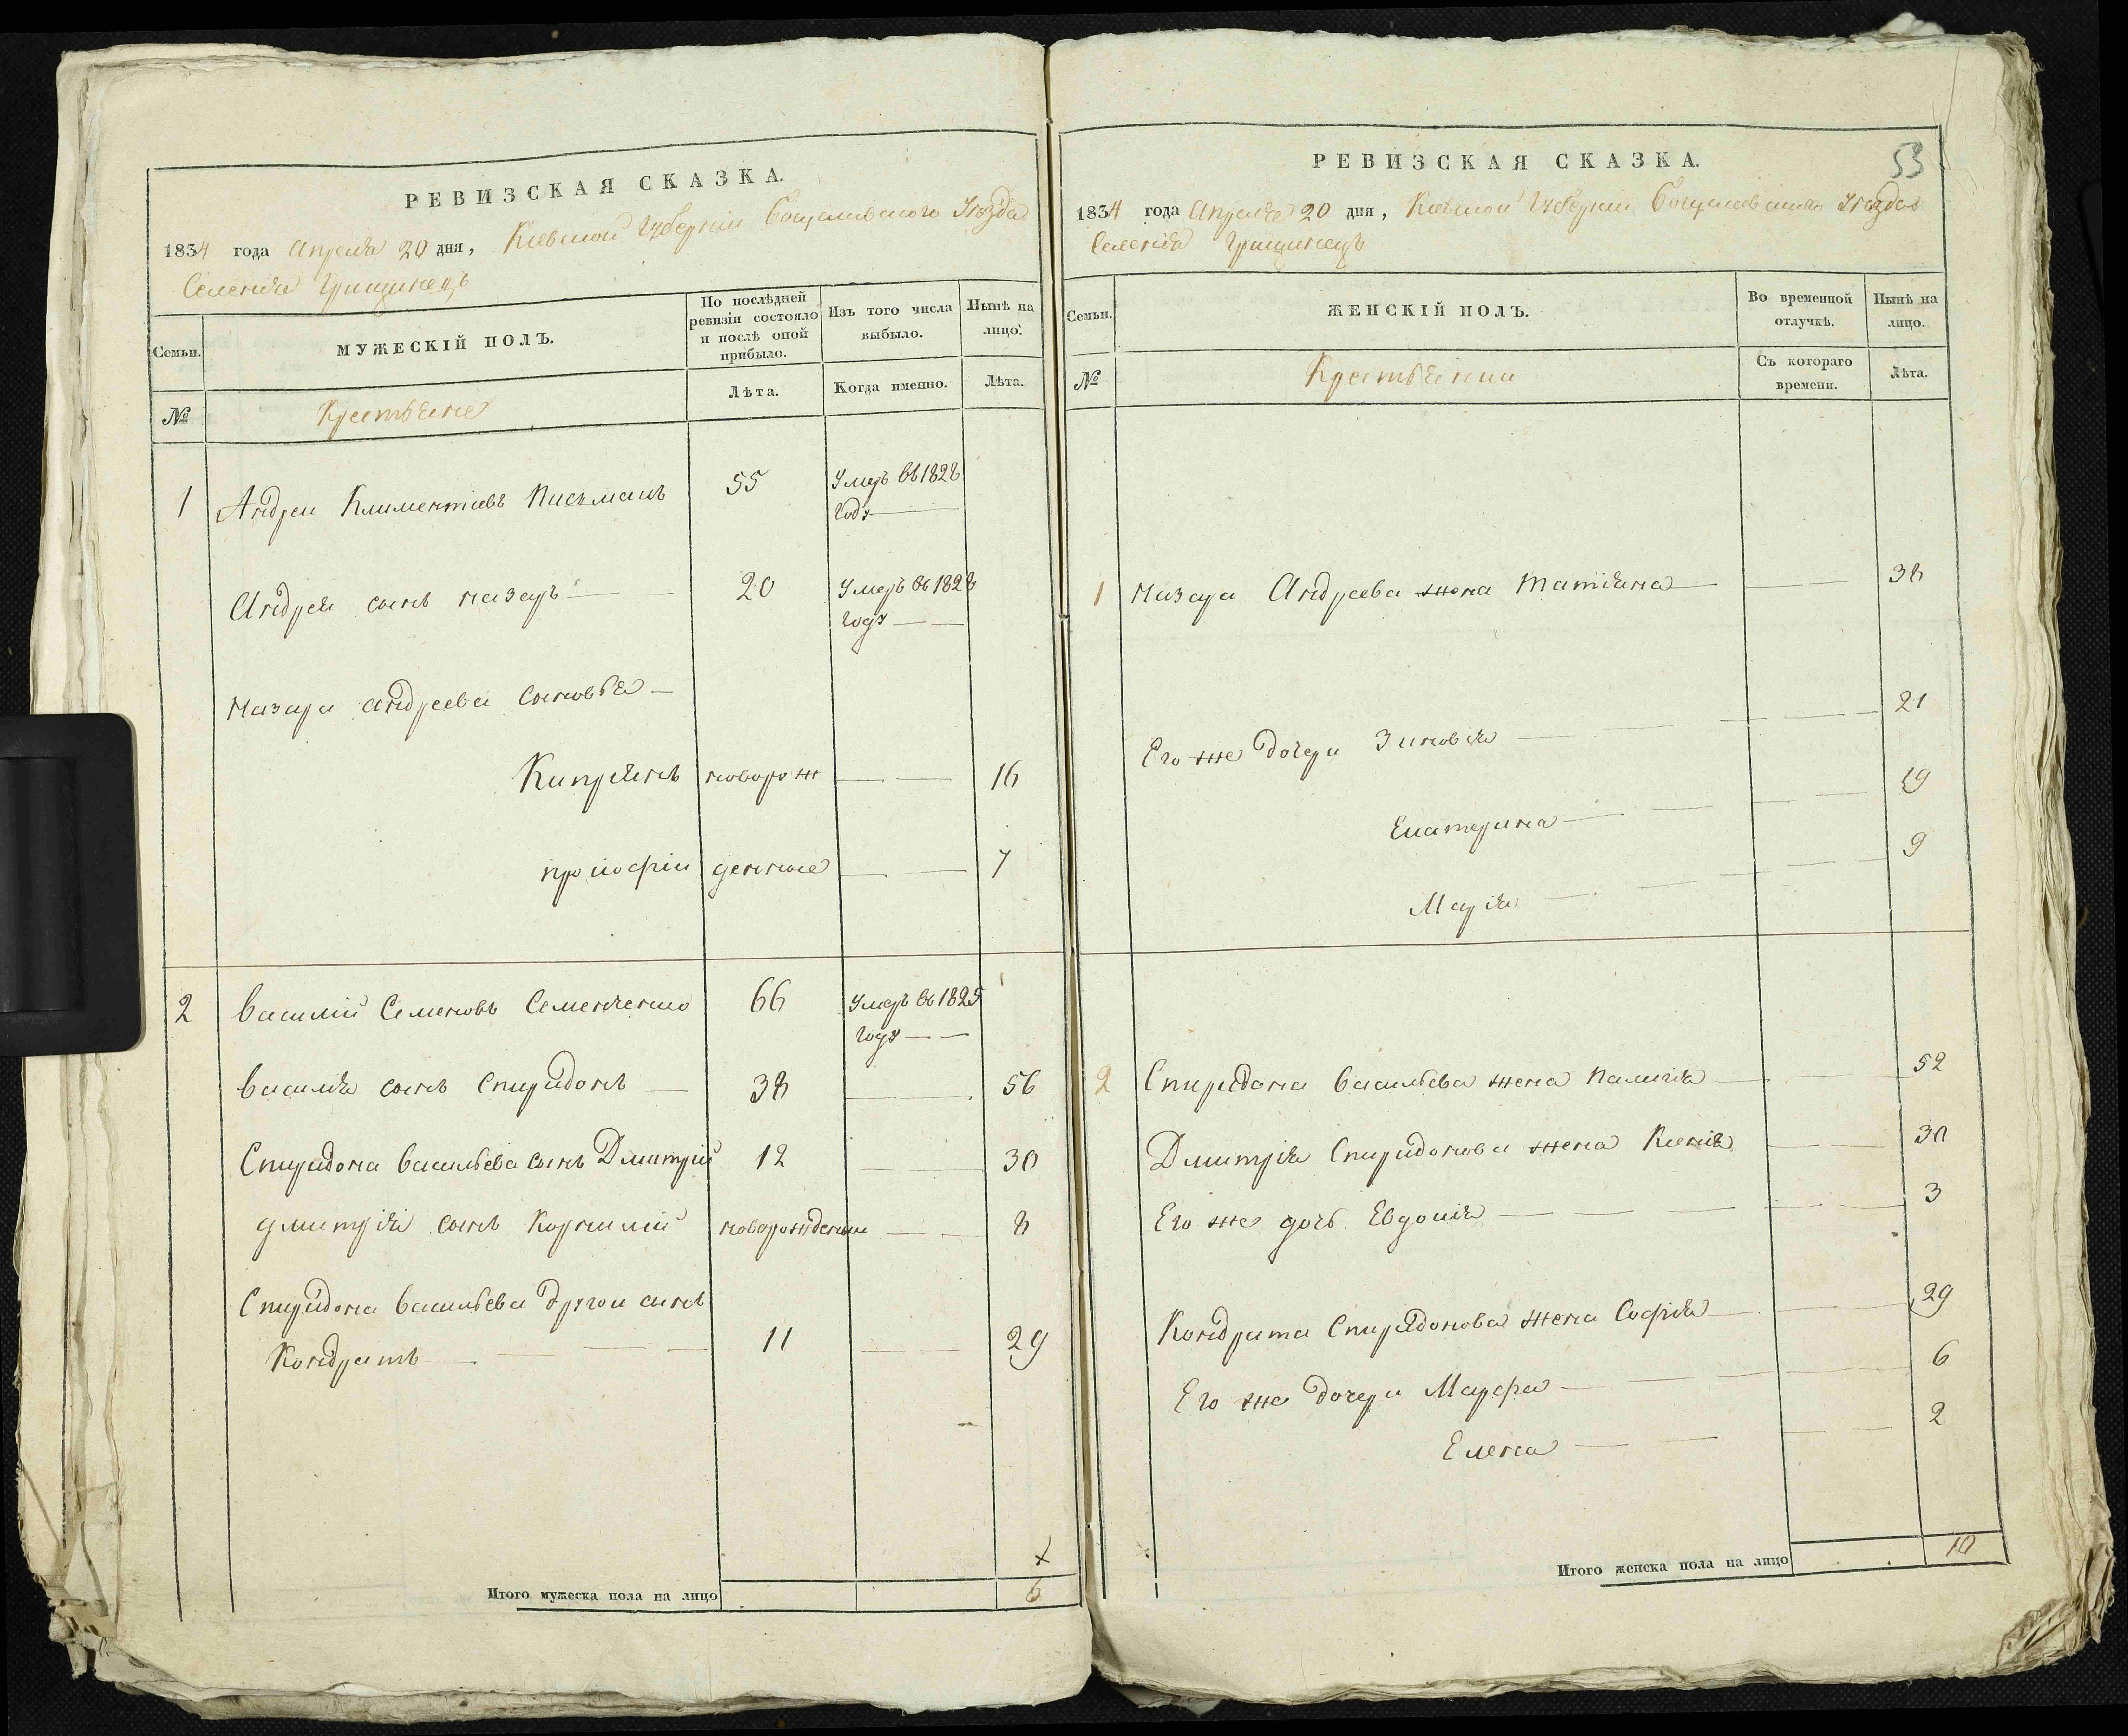 РЕВИЗСКАЯ СКАЗКА.
1834 года Апреля 20 дня, Киевской Губернии Богуславского Уезда
Селения Грищинецъ
Семьи.
МУЖЕСКІЙ ПОЛЪ.
По послѣдней ревизіи состояло и послѣ оной прибыло.
Изъ того числа выбыло.
Нынѣ на лицо.
№
Крестьяне
Лѣта.
Когда именно.
Лѣта.
1 Андрей Климентіевъ Письмакъ 55 Умеръ въ 1828
году
Андрея сынъ Назаръ 20 Умеръ въ 1828
году
Назара Андреева сыновья
Кипріянъ новорож 16
Прокофій денные 7
2 Василій Семеновъ Семенченко 66 Умеръ въ 1825
году
Василія сынъ Спиридонъ 38 56
Спиридона Васильева сынъ Дмитрій 12 30
Дмитрія сынъ Корнилій новорожденный 8
Спиридона Васильева другой сынъ
Кондратъ 11 29
Итого мужеска пола на лицо 6
РЕВИЗСКАЯ СКАЗКА.
53
1834 года Апреля 20 дня, Киевской Губернии Богуславского Уезда
Селения Грищинецъ
Семьи.
ЖЕНСКІЙ ПОЛЪ.
Во временной отлучкѣ.
Нынѣ на лицо.
№
Крестьянки
Съ котораго времени.
Лѣта.
1 Назара Андреева жена Татіяна 38
Его же дочери Зиновія 21
Екатерина 19
Марія 9
2 Спиридона Васильева жена Палагія 52
Дмитрія Спиридонова жена Ксенія 30
Его же дочь Евдокія 3
Кондрата Спиридонова жена Софія 29
Его же дочери Марфа 6
Елена 2
Итого женска пола на лицо 10